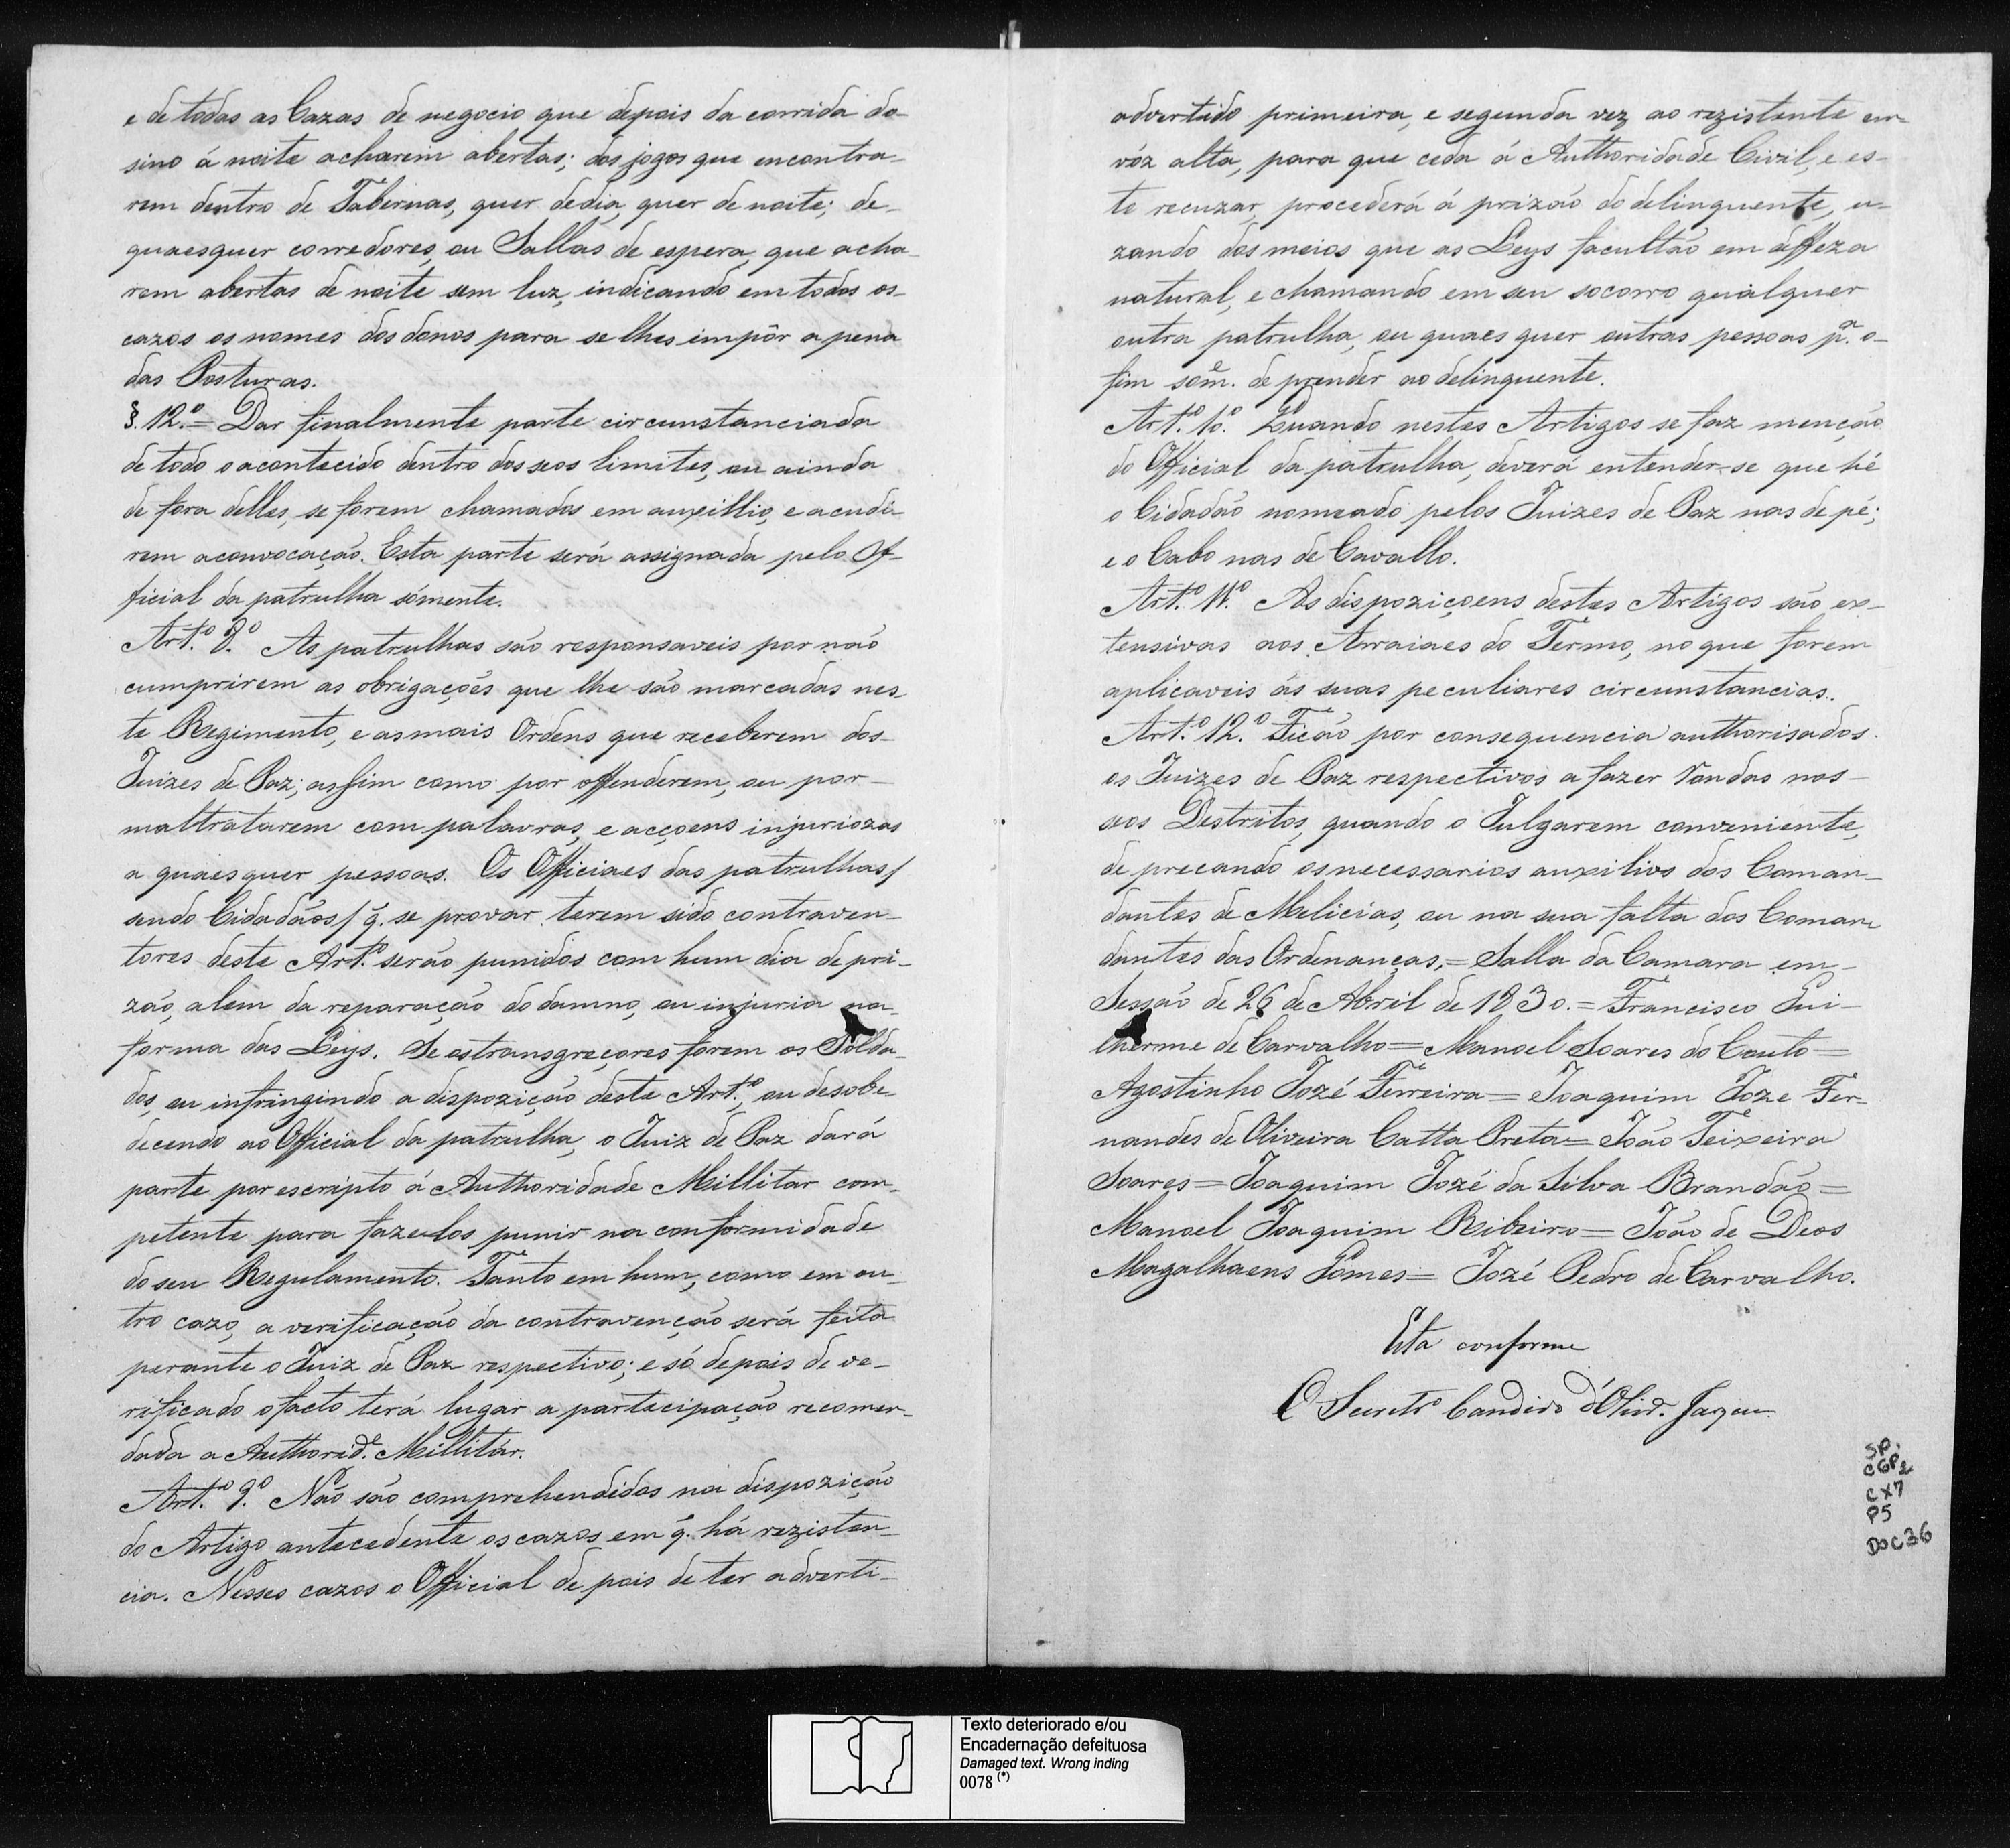 e de todas as Cazas de negocio que depois da corrida do-
sino á noite acharem abertas; dos jogos que encontra-
rem dentro de Tabernas, quer de dia, quer de noite; de-
quaesquer corredores, ou Sallas de espera, que acha-
rem abertas de noite sem luz, indicando em todos os-
cazos os nomes dos donos para se lhes impôr a pena
das Posturas.
§. 12.º = Dar finalmente parte circunstanciada
de todo o acontecido dentro dos seos limites, ou ainda
de fora delles, se forem chamados em auxillio, e acudi-
rem a convocação. Esta parte será assignada pelo Of-
ficial da patrulha sómente.
Art.º 8.º As patrulhas são responsaveis por não
cumprirem as obrigações que lhe são marcadas nes
te Regimento, e as mais Ordens que receberem dos-
Juizes de Paz; assim como por offenderem, ou por-
maltratarem com palavras, e acçoens injuriozas
a quaesquer pessoas. Os Officiaes das patrulhas/
sendo Cidadãos/ q̃. se provar terem sido contraven-
tores deste Art.º serão punidos com hum dia de pri-
zão, alem da reparação do damno, ou injuria na-
forma das Leys. Se os transgreçores forem os Solda-
dos, ou infringindo a dispozição deste Art.º, ou desobe-
decendo ao Official da patrulha, o Juiz de Paz dará
parte por escripto á Authoridade Millitar com-
petente para fazelos punir na conformidade
do seu Regulamento. Tanto em hum, como em ou-
tro cazo, a verificação da contravenção será feita
perante o Juiz de Paz respectivo; e só depois de ve-
rificado o facto terá lugar a participação recomen-
dada a Authorid.e Millitár.
Art.º 9.º Não são comprehendidos na dispozição
do Artigo antecedente os cazos em q̃. há rezisten-
cia. Nesses cazos o Official de pois de ter adverti-
advertido primeira, e segunda vez ao rezistente em-
vóz alta, para que ceda á Authoridade Civil, e es-
te recuzar, procederá á prizão do delinquente, u-
zando dos meios que as Leys facultão em deffeza
natural, e chamando em seu socorro qualquer
outra patrulha, ou quaes quer outras pessoas p.a o-
fim sóm.e de prender ao delinquente.
Art.º 10.º Quando nestes Artigos se faz menção
do Official da patrulha, deverá entender-se que hé
o Cidadão nomeado pelos Juizes de Paz nas de pé;
e o Cabo nas de Cavallo.
Art.º 11.º As dispoziçoens destes Artigos são ex-
tensivas aos Arraiaes do Termo, no que forem
aplicaveis ás suas peculiares circunstancias.
Art.º 12.º Ficão por consequencia authorisados
os Juizes de Paz respectivos a fazer Rondas nos-
seos Destritos, quando o Julgarem conveniente,
de precando os necessarios auxilios dos Coman-
dantes de Melicias, ou na sua falta dos Coman
dantes das Ordenanças, = Salla da Camara em-
Sessão de 26 de Abril de 1830. = Francisco Gui-
lherme de Carvalho = Manoel Soares do Couto =
Agostinho Jozé Ferreira = Joaquim Joze Fer-
nandes de Oliveira Catta Preta = João Teixeira
Soares = Joaquim Jozé da Silva Brandão =
Manoel Joaquim Ribeiro = João de Deos
Magalhaens Gomes = Jozé Pedro de Carvalho.
Esta conforme
O Secretr.º Candido d'Oliv.
SP.
CGP1
CX7
P5
DOC36
Texto deteriorado e/ou
Encadernação defeituosa
Damaged text. Wrong inding
0078 (*)